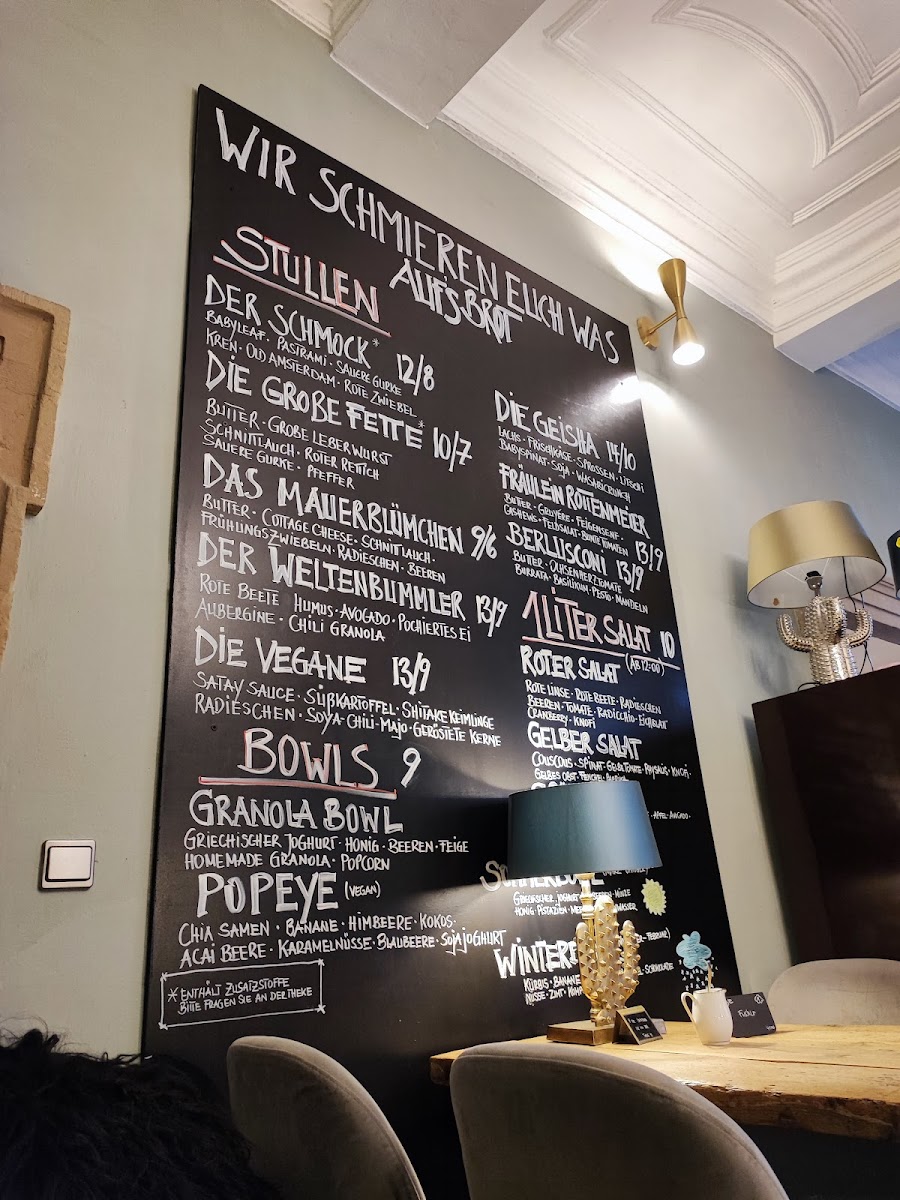 WIR SCHMIEREN EUCH WAS
AUF'S BROT
STULLEN
DER SCHMOCK* 12/8
BABYLEAF · PASTRAMI · SAUERE GURKE
KREN · OLD AMSTERDAM · ROTE ZWIEBEL
DIE GROBE FETTE* 10/7
BUTTER · GROBE LEBERWURST
SCHNITTLAUCH · ROTER RETTICH
SAUERE GURKE · PFEFFER
DAS MAUERBLÜMCHEN 9/6
BUTTER · COTTAGE CHEESE · SCHNITTLAUCH ·
FRÜHLINGSZWIEBELN · RADIESCHEN · BEEREN
DER WELTENBUMMLER 13/9
ROTE BEETE HUMUS · AVOCADO · POCHIERTES EI
AUBERGINE · CHILI GRANOLA
DIE VEGANE 13/9
SATAY SAUCE · SÜßKARTOFFEL · SHIITAKE KEIMLINGE
RADIESCHEN · SOYA-CHILI-MAJO · GERÖSTETE KERNE
BOWLS 9
GRANOLA BOWL
GRIECHISCHER JOGHURT · HONIG · BEEREN · FEIGE
HOMEMADE GRANOLA · POPCORN
POPEYE (VEGAN)
CHIA SAMEN · BANANE · HIMBEERE · KOKOS ·
ACAI BEERE · KARAMELNÜSSE · BLAUBEERE · SOJAJOGHURT
* ENTHÄLT ZUSATZSTOFFE
BITTE FRAGEN SIE AN DER THEKE
DIE GEISHA 14/10
LACHS · FRISCHKÄSE · SPROSSEN · LITSCHI
BABYSPINAT · SOJA · WASABICRUNCH
FRÄULEIN ROTTENMEIER
BUTTER · GRUYÈRE · FEIGENSENF ·
CASHEWS · FELDSALAT · BUNTE TOMATEN 13/9
BERLUSCONI 13/9
BUTTER · OCHSENHERZTOMATE
BURRATA · BASILIKUM · PESTO · MANDELN
1LITER SALAT 10
(AB 12:00)
ROTER SALAT
ROTE LINSE · ROTE BEETE · RADIESCHEN
BEEREN · TOMATE · RADICCHIO · EICHBLAT
CRANBERRY · KNOFI
GELBER SALAT
COUSCOUS · SPINAT · GELBE TOMATE · PHYSALIS · KNOFI
GELBES OBST · FENCHEL
· APFEL · AVOCADO ·
GRIECHISCHER JOGHURT
HONIG · PISTAZIEN WASSER
WINTER
KÜRBIS · BANANE SCHOKOLADE
NÜSSE · ZIMT